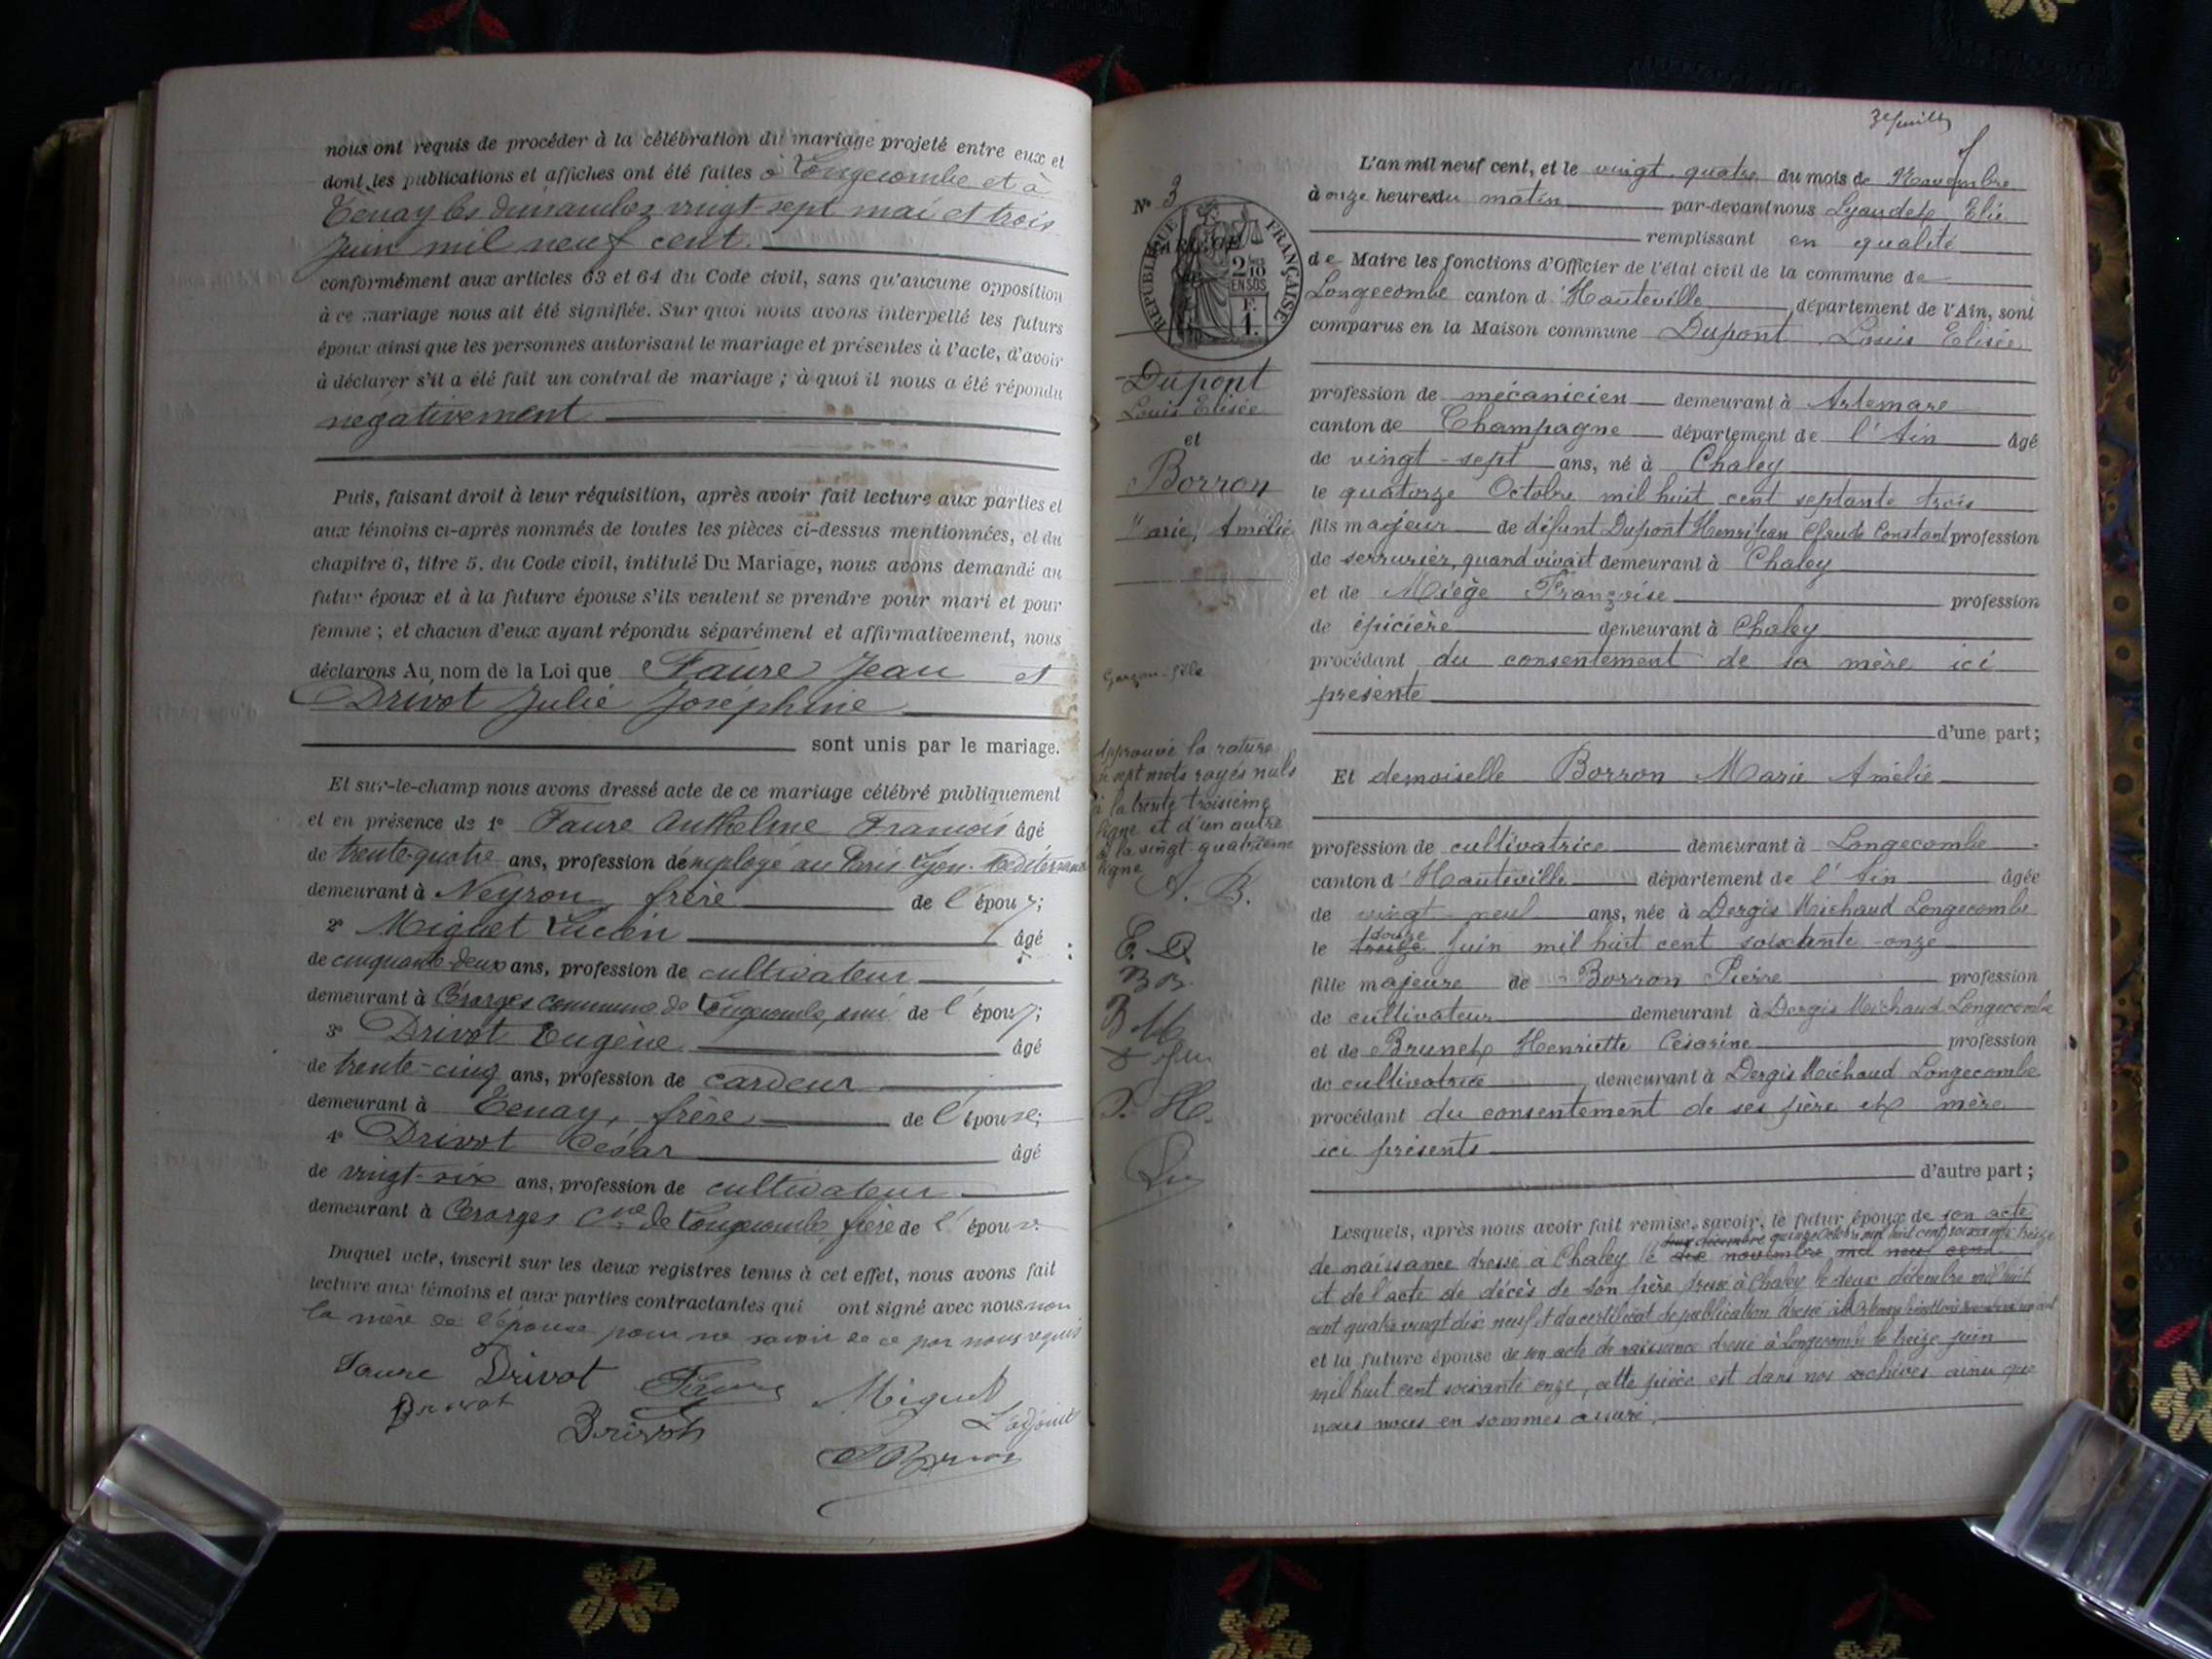 nous ont requis de procéder à la célébration du mariage projeté entre eux et
dont les publications et affiches ont été faites à Longecombe et à
Tenay les dimanches vingt-sept mai et trois
Juin mil neuf cent.
conformément aux articles 63 et 64 du Code civil, sans qu'aucune opposition
à ce mariage nous ait été signifiée. Sur quoi nous avons interpellé les futurs
époux ainsi que les personnes autorisant le mariage et présentes à l'acte, d'avoir
à déclarer s'il a été fait un contrat de mariage ; à quoi il nous a été répondu
négativement
Puis, faisant droit à leur réquisition, après avoir fait lecture aux parties et
aux témoins ci-après nommés de toutes les pièces ci-dessus mentionnées, et du
chapitre 6, titre 5, du Code civil, intitulé Du Mariage, nous avons demandé au
futur époux et à la future épouse s'ils veulent se prendre pour mari et pour
femme ; et chacun d'eux ayant répondu séparément et affirmativement, nous
déclarons Au nom de la Loi que Faure Jean et
Drivot Julie Joséphine
sont unis par le mariage.
Et sur-le-champ nous avons dressé acte de ce mariage célébré publiquement
et en présence de 1° Faure Anthelme François âgé
de trente-quatre ans, profession d'employé au Paris-Lyon-Méditerranée
demeurant à Neyron, frère de l'époux;
2° Miguet Lucien âgé
de cinquante-deux ans, profession de cultivateur
demeurant à commune de Longecombe, ami de l'époux;
3° Drivot Eugène âgé
de trente-cinq ans, profession de cardeur
demeurant à Tenay, frère de l'épouse;
4° Drivot César âgé
de vingt-six ans, profession de cultivateur
demeurant à Cne de Longecombe, frère de l'épouse.
Duquel acte, inscrit sur les deux registres tenus à cet effet, nous avons fait
lecture aux témoins et aux parties contractantes qui ont signé avec nous non
la mère de l'épouse pour ne savoir de ce par nous requis
Faure Drivot Faure Miguet
Drivot Drivot L'adjoint
3e feuille
L'an mil neuf cent, et le vingt-quatre du mois de Novembre
à onze heures du matin par-devant nous Lyaudet Elie
remplissant en qualité
de Maire les fonctions d'Officier de l'état civil de la commune de
Longecombe canton d'Hauteville département de l'Ain, sont
comparus en la Maison commune Dupont Louis Elisée
profession de mécanicien demeurant à Artemare
canton de Champagne département de l'Ain âgé
de vingt-sept ans, né à Chaley
le quatorze Octobre mil huit cent septante trois
fils majeur de défunt Dupont Henri Jean Claude Constant profession
de serrurier, quand vivait demeurant à Chaley
et de Miège Françoise profession
de épicière demeurant à Chaley
procédant du consentement de sa mère ici
présente
d'une part;
Et demoiselle Borron Marie Amélie
profession de cultivatrice demeurant à Longecombe
canton d'Hauteville département de l'Ain âgée
de vingt-neuf ans, née à Dergis Michaud Longecombe
le treize douze Juin mil huit cent soixante-onze
fille majeure de Borron Pierre profession
de cultivateur demeurant à Dergis Michaud Longecombe
et de Brunet Henriette Césarine profession
de cultivatrice demeurant à Dergis Michaud Longecombe
procédant du consentement de ses père et mère
ici présents
d'autre part;
Lesquels, après nous avoir fait remise, savoir, le futur époux de son acte
deux décembre quinze Octobre mil huit cent soixante treize
de naissance dressé à Chaley le dix novembre mil neuf cent
et de l'acte de décès de son père dressé à Chaley le deux décembre mil huit
cent quatre vingt dix neuf et du certificat de publication dressé à
et la future épouse de son acte de naissance dressé à Longecombe le treize juin
mil huit cent soixante onze, cette pièce est dans nos archives ainsi que
nous nous en sommes assuré.
N° 3
RÉPUBLIQUE FRANÇAISE
2/10 EN SUS
F. 1.
Dupont
Louis Elisée
et
Borron
Marie, Amélie
Garçon-fille
Approuvé la rature
de sept mots rayés nuls
à la trente troisième
ligne et d'un autre
à la vingt-quatrième
ligne
A. B.
E. D.
B M